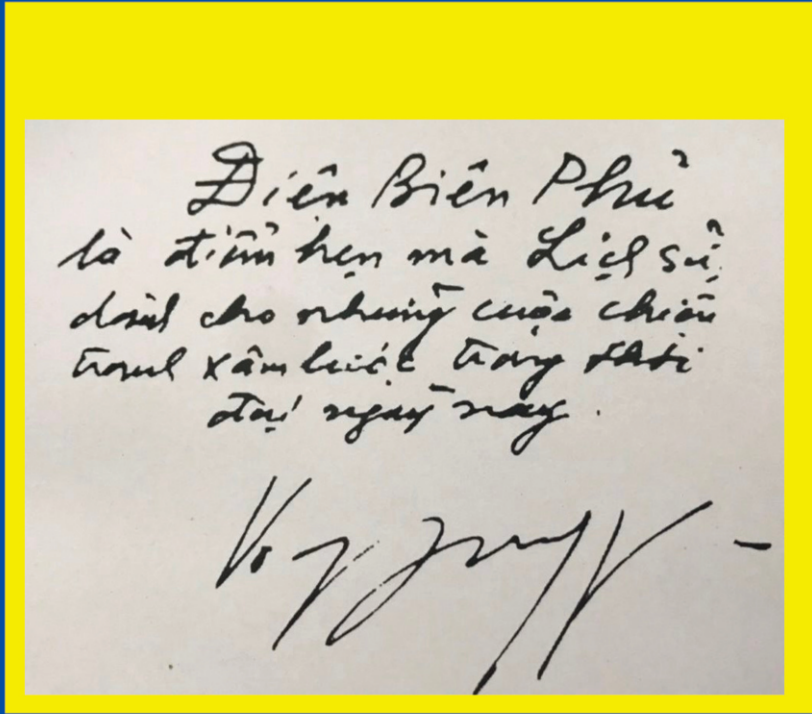 Điện Biên Phủ
là điểm hẹn mà Lịch sử
dành cho những cuộc chiến
tranh xâm lược trong thời
đại ngày nay.
Võ Nguyên Giáp